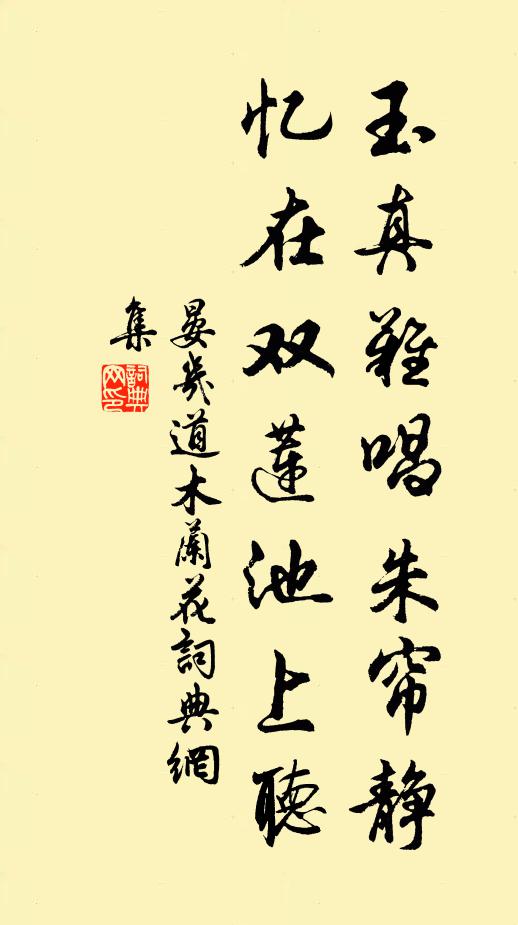 玉真难唱朱帘静
忆在双莲池上聽
晏幾道木蘭花詞典網
集
詞典
网印